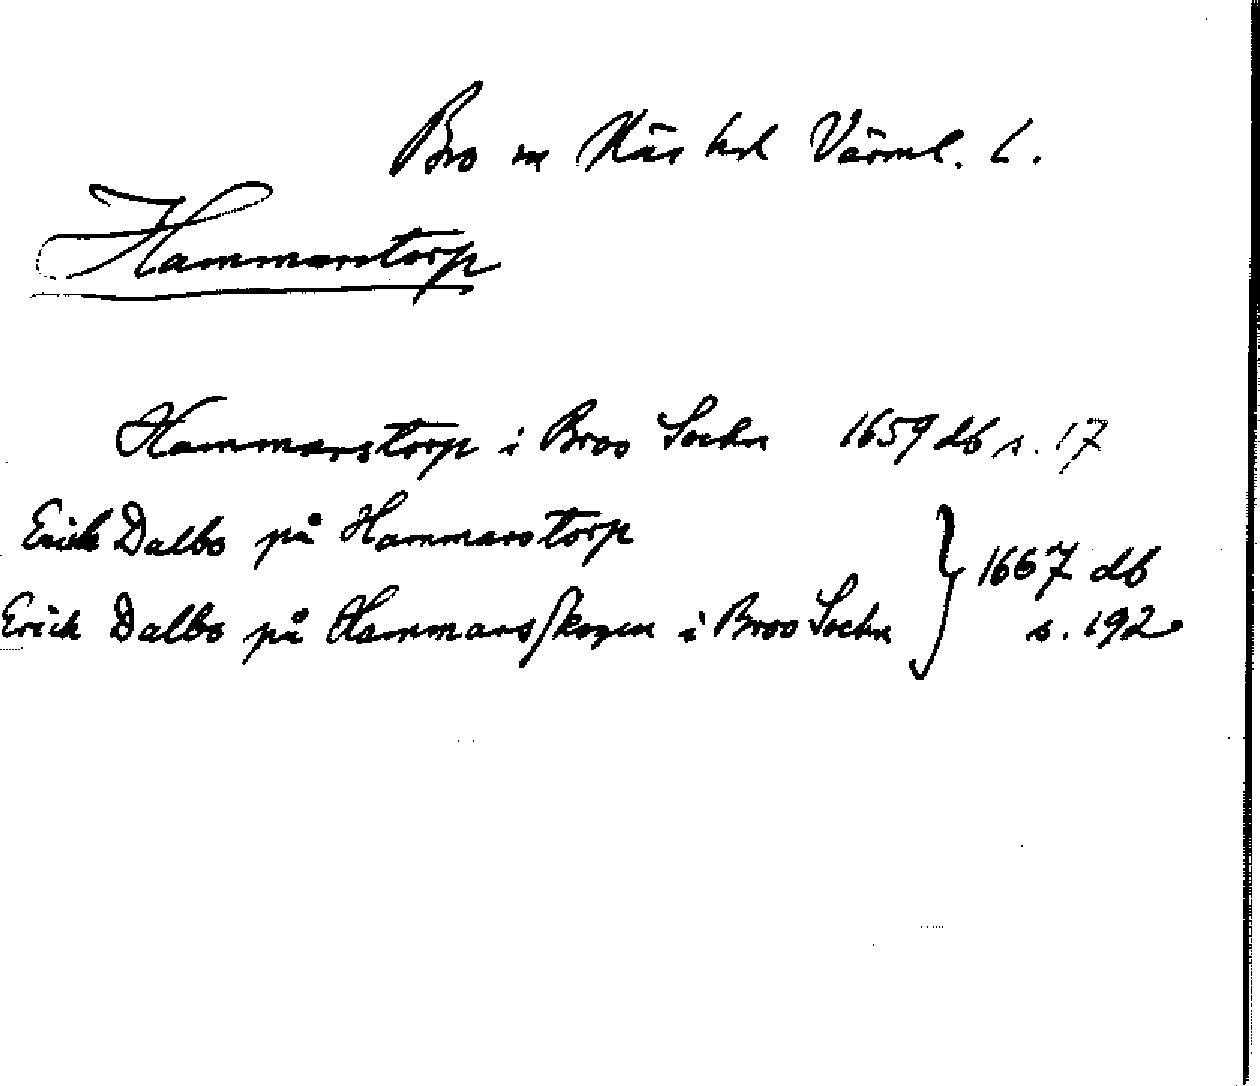 Bro sn Näs hd Värml. l.
Hammarstorp
Hammarstorp i Broo Sochn 1659 db s. 17
Erich Dalbo på Hammarstorp
Erich Dalbo på Hammarsskogen i Broo Sochn } 1667 db
s. 192